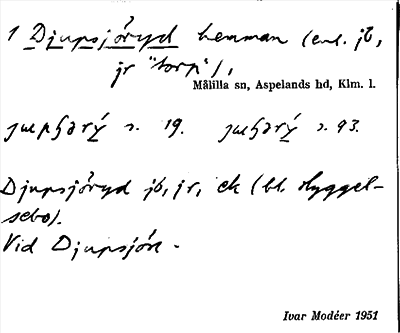 1 Djupsjöryd hemman (enl. jb,
jr "torp"),
Målilla sn, Aspelands hd, Klm. l.
s. 19. s. 93.
Djupsjöryd jb, jr, ek (bl. Hyggel-
sebo).
Vid Djupsjön.
Ivar Modéer 1951